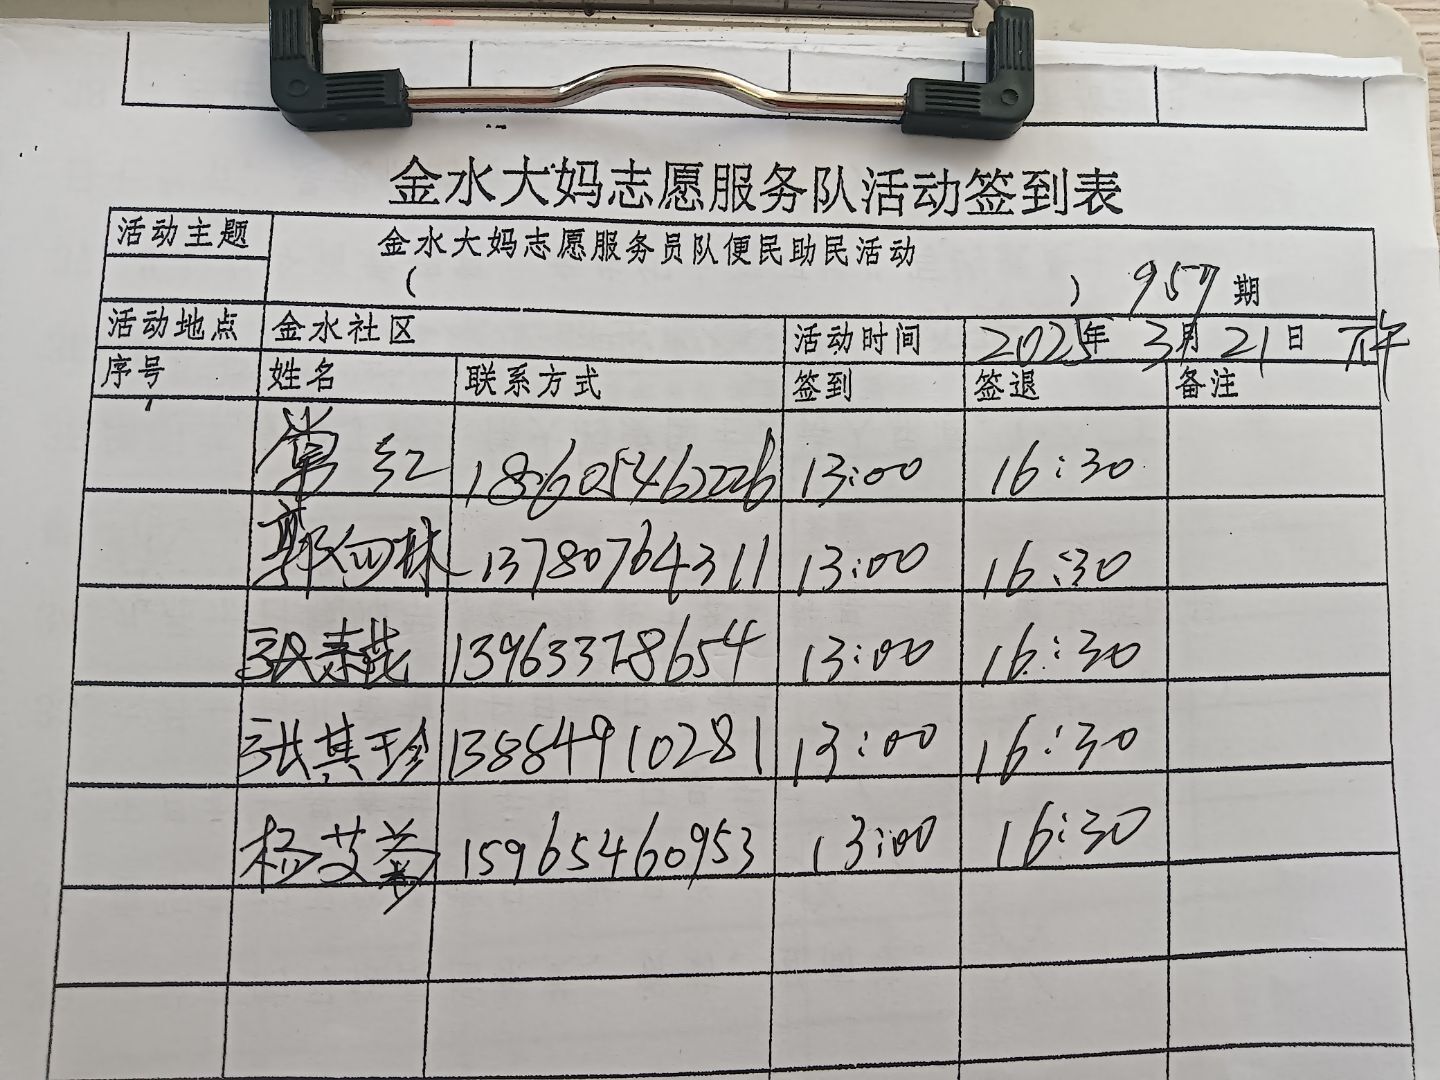 金水大妈志愿服务队活动签到表
活动主题 金水大妈志愿服务员队便民助民活动
( ) 957期
活动地点 金水社区 活动时间 2025年 3月21日 下午
序号 姓名 联系方式 签到 签退 备注
常红 18605462226 13:00 16:30
郭向林 13780764311 13:00 16:30
张素花 13963378654 13:00 16:30
张其珍 13884910281 13:00 16:30
杨艾 15965460953 13:00 16:30